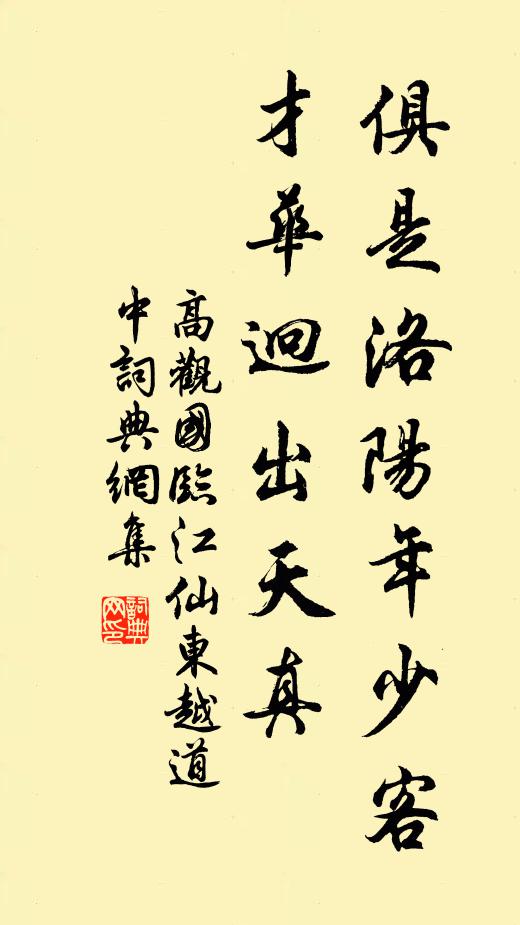 俱是洛陽年少客
才華迥出天真
高觀國臨江仙東越道
中詞典網集
詞典
网印